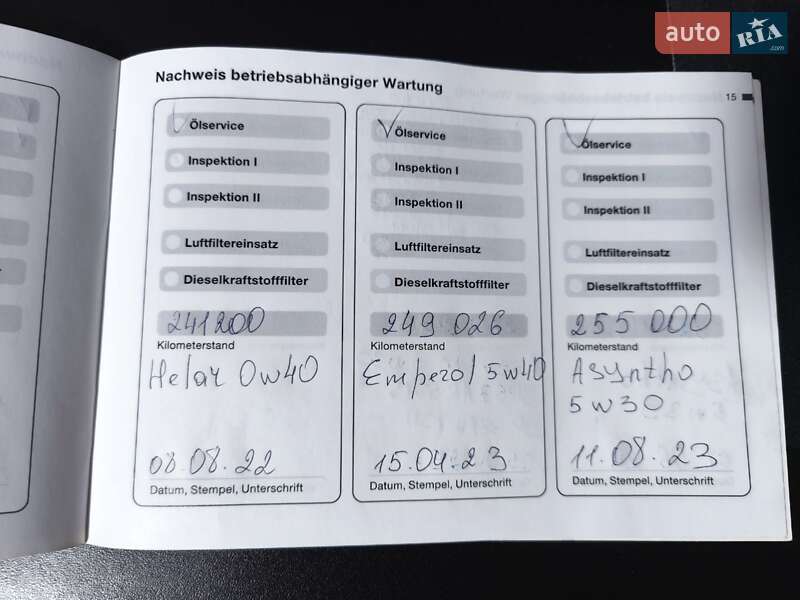 auto RIA.com
Nachweis betriebsabhängiger Wartung
15
Ölservice
Inspektion I
Inspektion II
Luftfiltereinsatz
Dieselkraftstofffilter
241200
Kilometerstand
Helar 0w40
08.08.22
Datum, Stempel, Unterschrift
Ölservice
Inspektion I
Inspektion II
Luftfiltereinsatz
Dieselkraftstofffilter
249 026
Kilometerstand
Emperol 5w40
15.04.23
Datum, Stempel, Unterschrift
Ölservice
Inspektion I
Inspektion II
Luftfiltereinsatz
Dieselkraftstofffilter
255 000
Kilometerstand
Asyntho
5w30
11.08.23
Datum, Stempel, Unterschrift